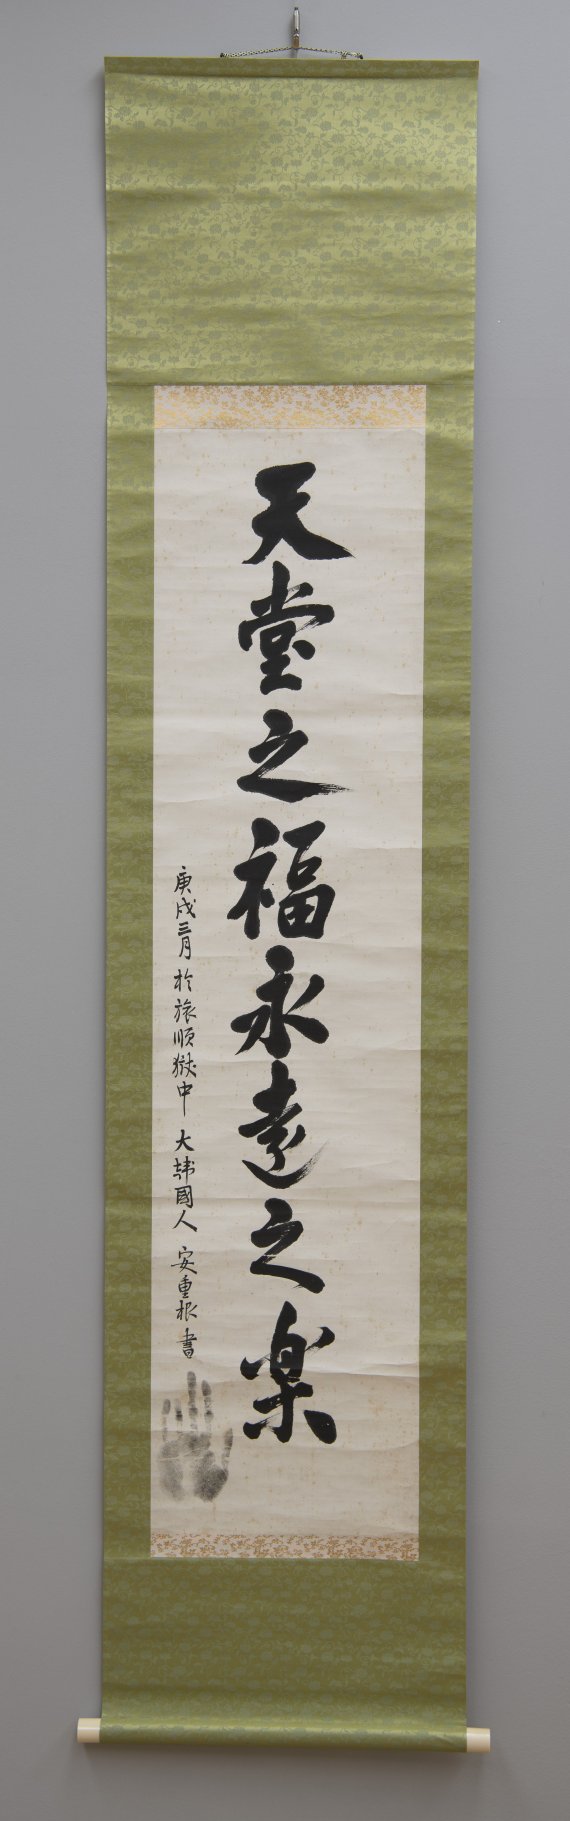 天堂之福永遠之楽
庚戌三月 於旅順獄中 大韓國人 安重根書